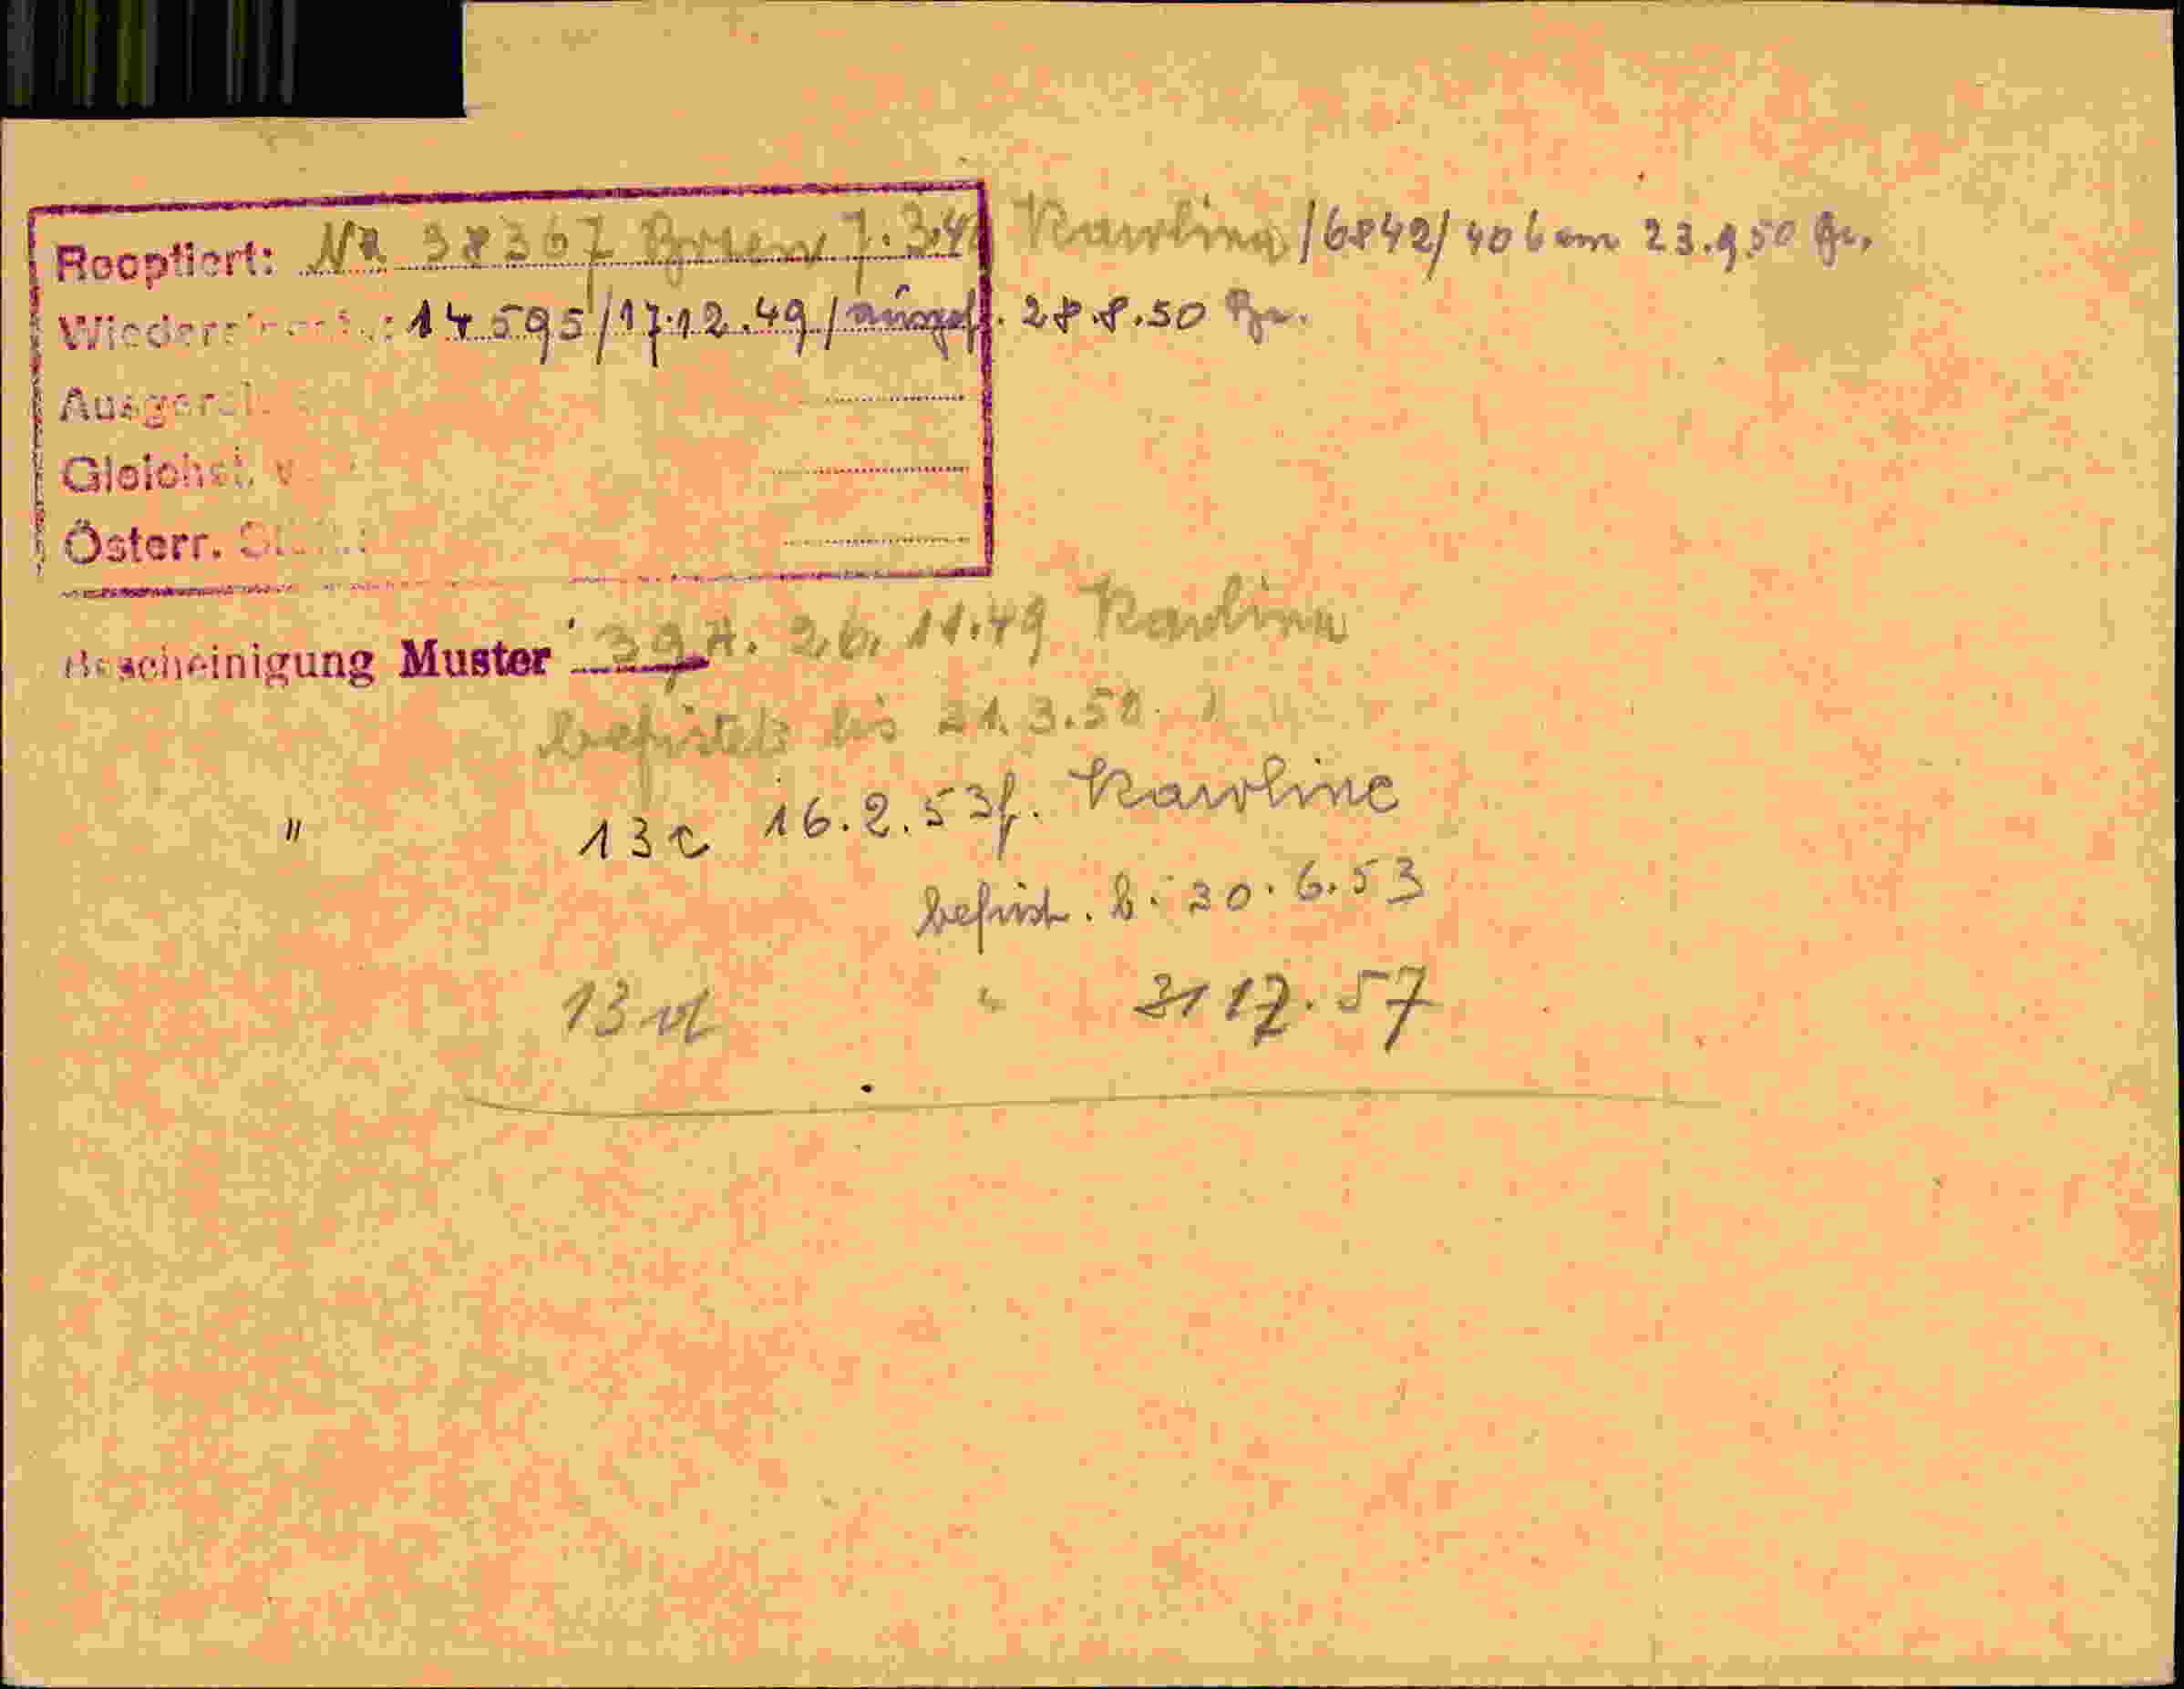 Reoptiert: Nr 38367 Bozen 7.3.49 Karolina /6842/ 406 am 23.9.50 Gr.
14595/17.12.49/ ausgef. 28.8.50 Gr.
Ausger
Gleichst. v
Österr.
Bescheinigung Muster 39A. 26.11.49 Karolina
befristet bis 31.3.50. "
" 13c 16.2.53 f. Karoline
befrist. b. 30.6.53
13 d " 31 12.57